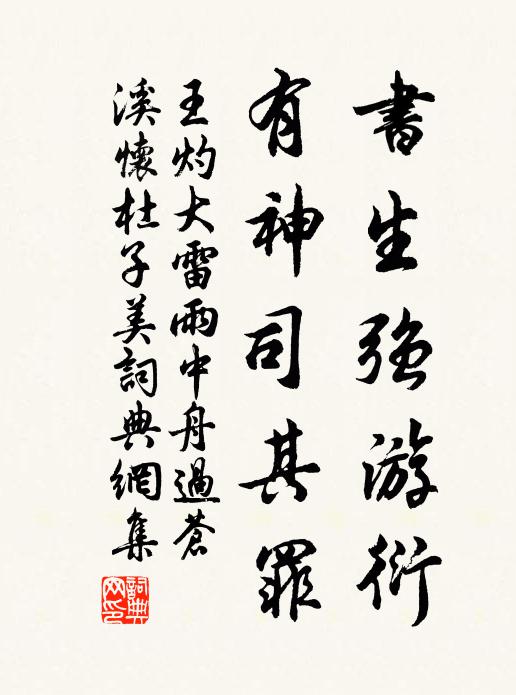 書生強游衍
有神司其罪
王灼大雷雨中舟過蒼
溪懷杜子美詞典網集
詞典
网印